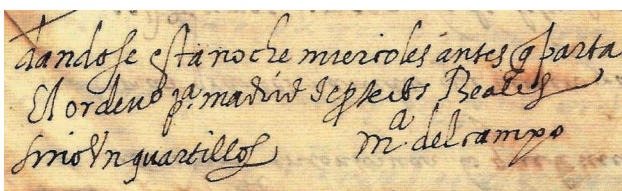 dandose esta noche miercoles antes q parta
El orden.º pª. madrid Reales
sino Vn quartillos mª. del campo